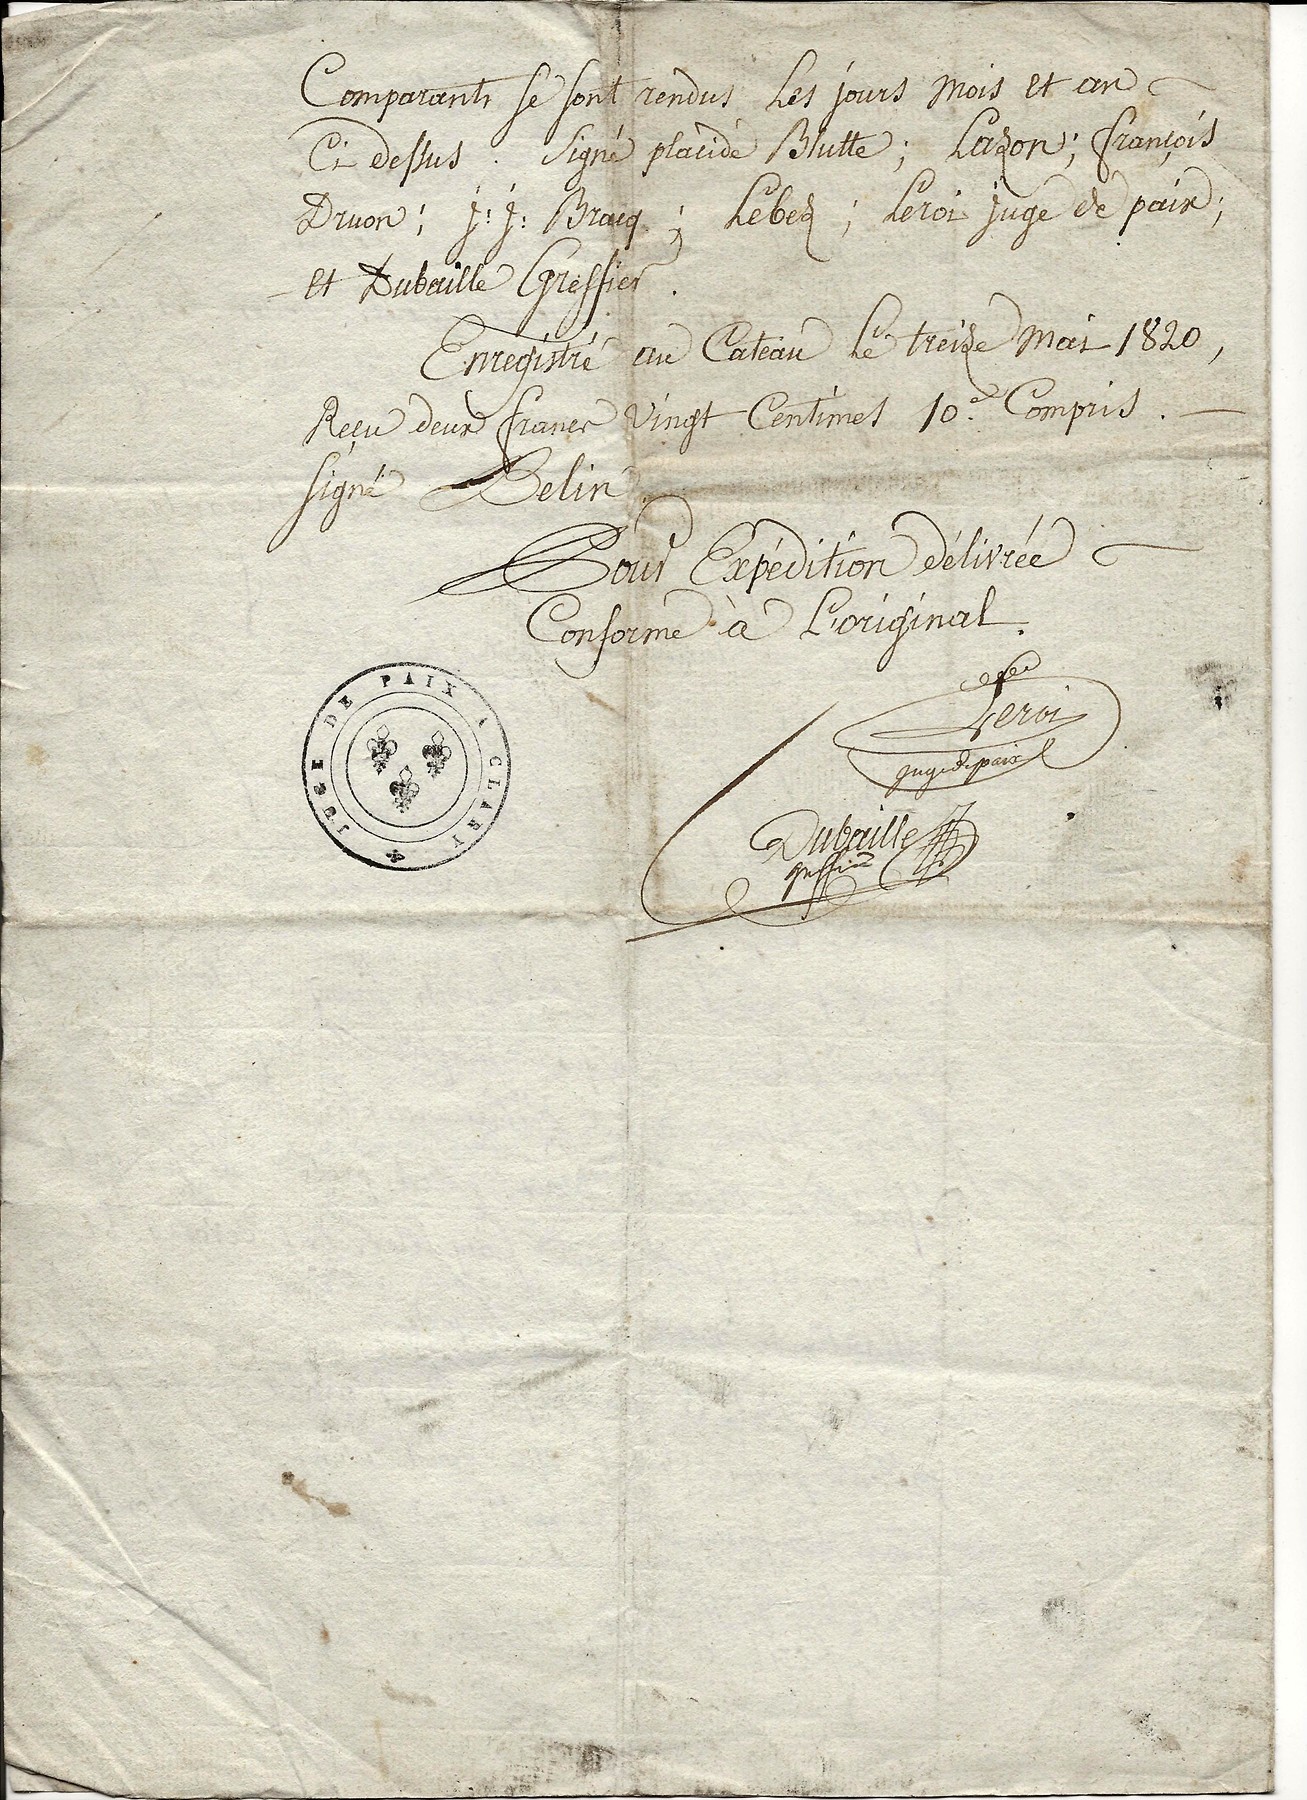 Comparants se sont rendus les jours mois et an
Ci dessus . signé placide Blutte ; Lazon ; françois
Druon ; j: j: Bracq ; Lebez ; Leroi juge de paix ;
et Dubaille Greffier .
Enregistré au Cateau le treize mai 1820 ,
Reçu deux francs vingt Centimes 10e Compris .
signé Belin .
Pour Expédition délivrée
Conforme à L'original .
JUGE DE PAIX A CLARY
Leroi
juge de paix
Dubaille
greffier